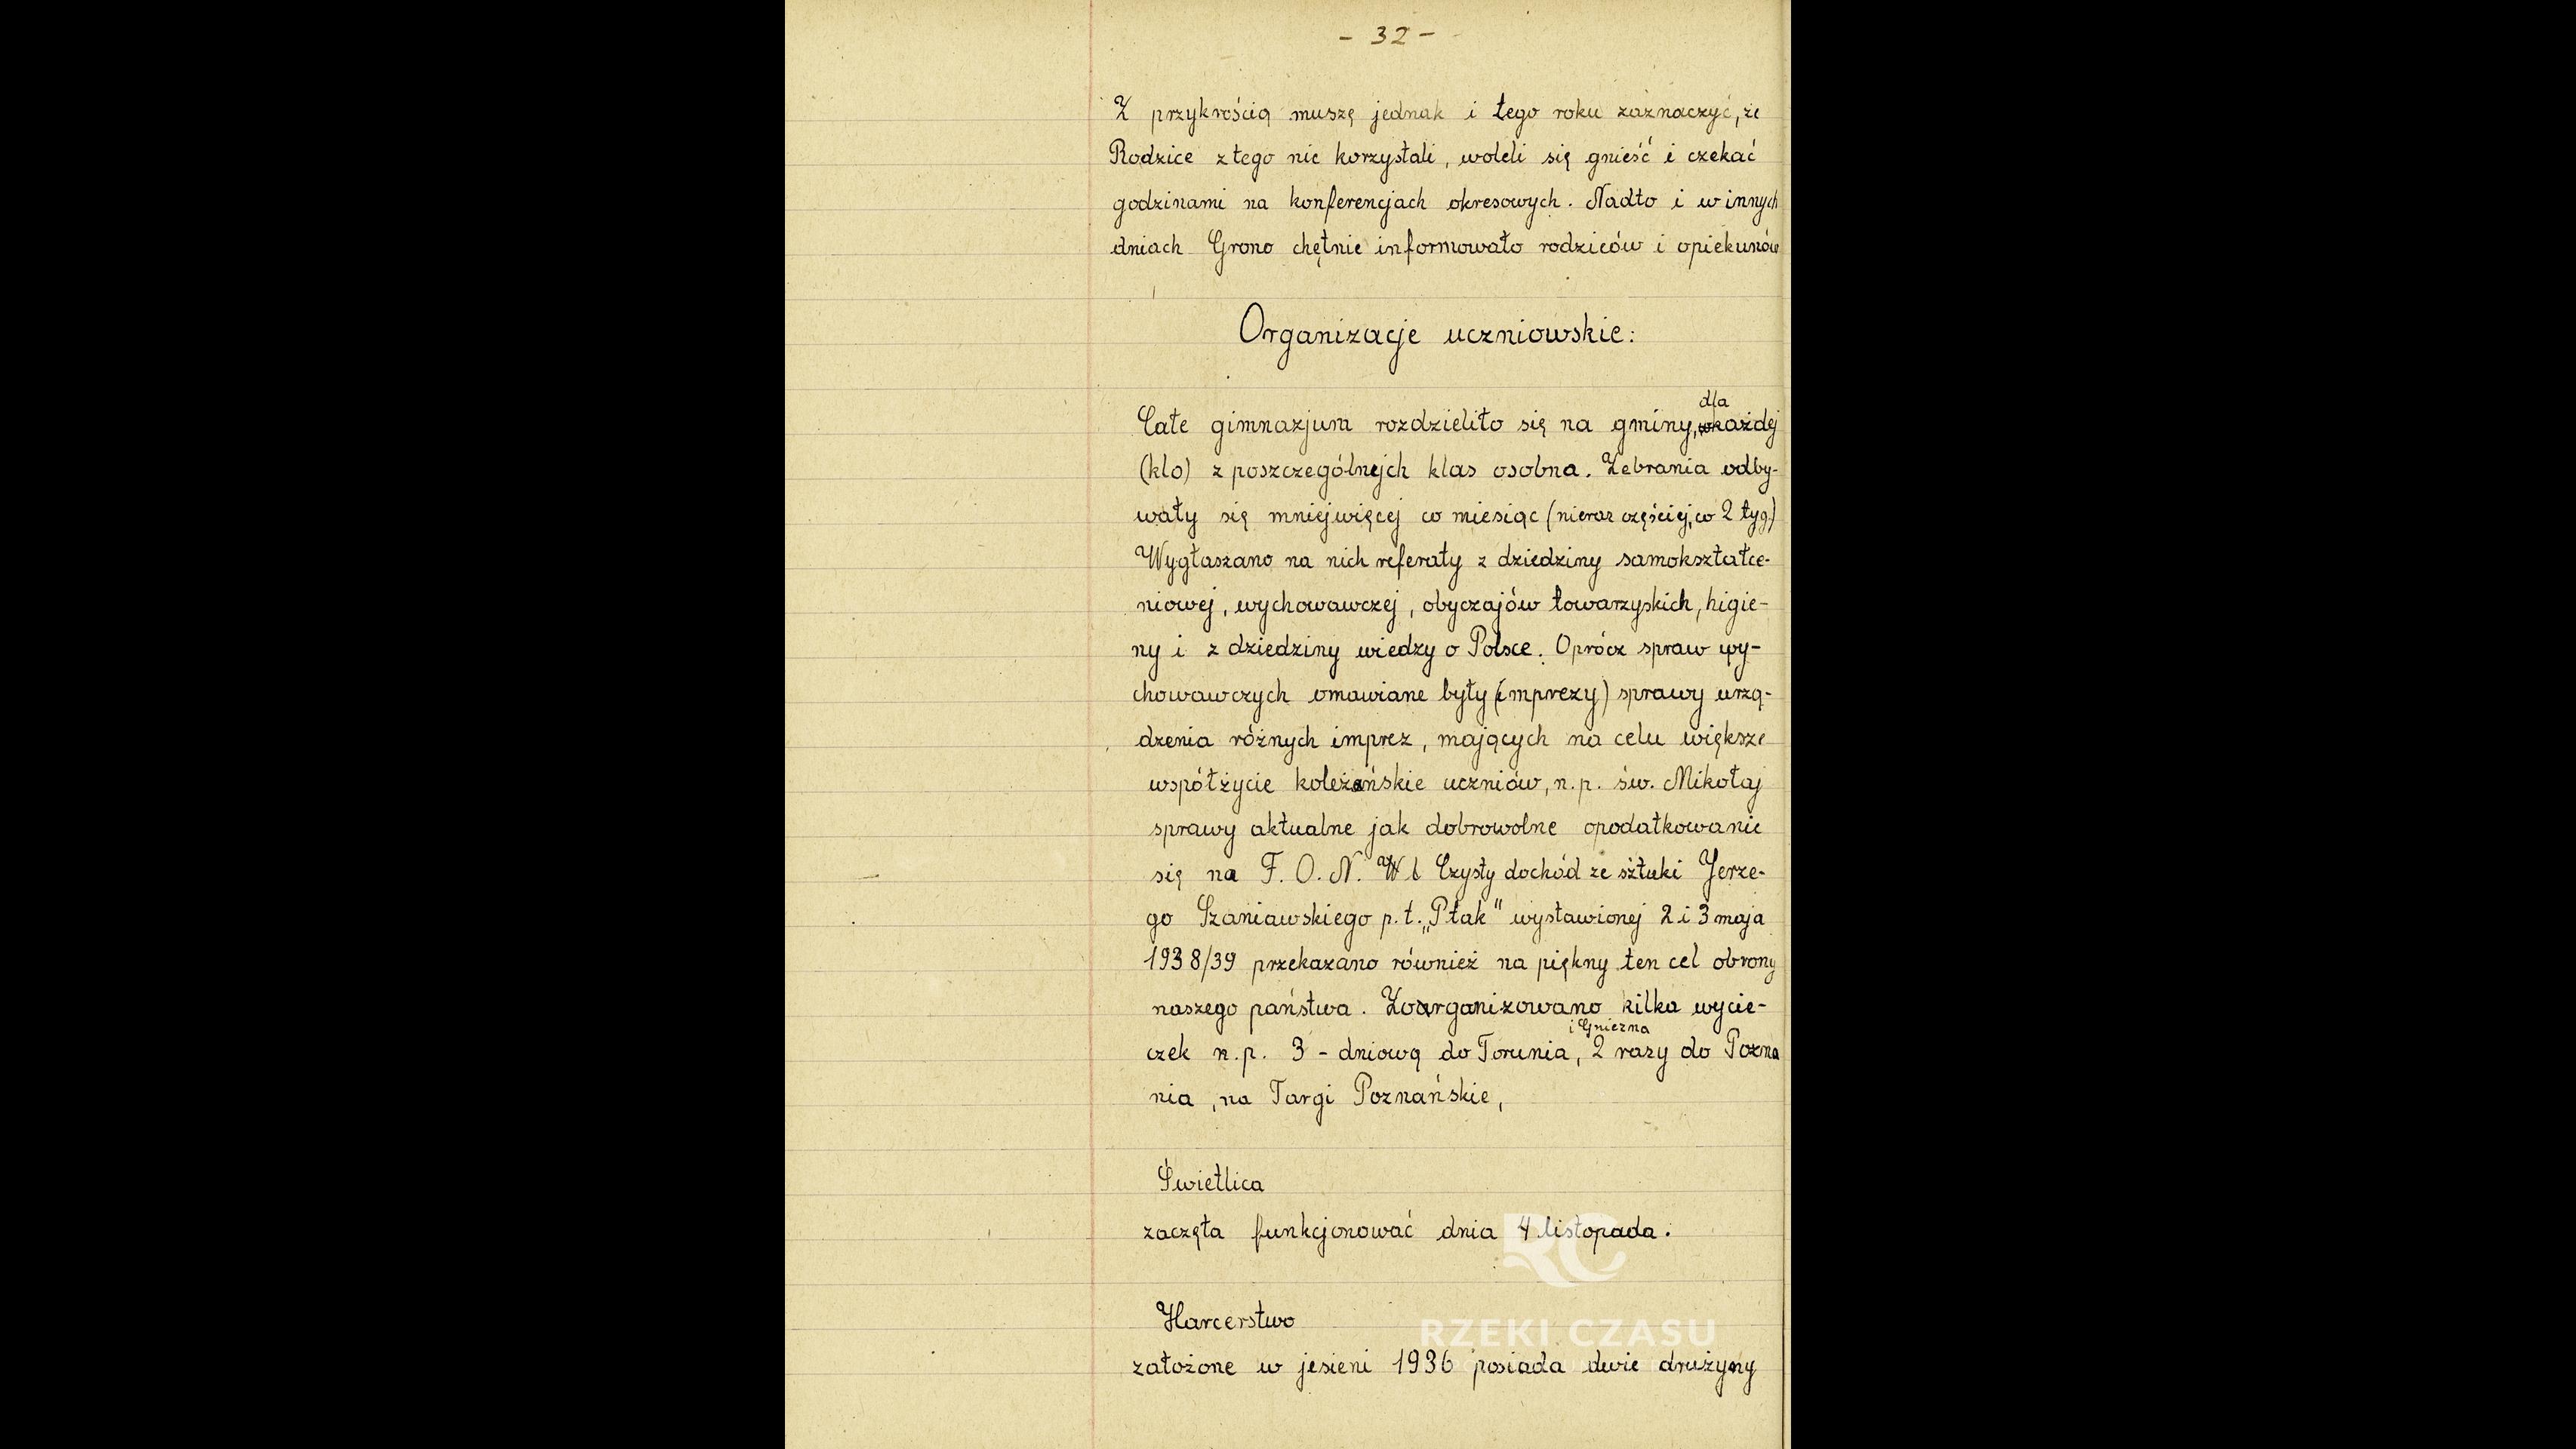 - 32 -
Z przykrością muszę jednak i tego roku zaznaczyć, że
Rodzice z tego nie korzystali, woleli się gnieść i czekać
godzinami na konferencjach okresowych. Nadto i w innych
dniach Grono chętnie informowało rodziców i opiekunów
Organizacje uczniowskie:
dla
Całe gimnazjum rozdzieliło się na gminy, każdej
(klo) z poszczególnych klas osobna. Zebrania odby-
wały się mniejwięcej co miesiąc (nieraz częściej, co 2 tyg.)
Wygłaszano na nich referaty z dziedziny samokształce-
niowej, wychowawczej, obyczajów towarzyskich, higie-
ny i z dziedziny wiedzy o Polsce. Oprócz spraw wy-
chowawczych omawiane były (imprezy) sprawy urzą-
dzenia różnych imprez, mających na celu większe
współżycie koleżeńskie uczniów, n.p. św. Mikołaj
sprawy aktualne jak dobrowolne opodatkowanie
się na F. O. N. Czysty dochód ze sztuki Jerze-
go Szaniawskiego p. t. „Ptak" wystawionej 2 i 3 maja
1938/39 przekazano również na piękny ten cel obrony
naszego państwa. Zorganizowano kilka wycie-
i Gniezna
czek n.p. 3 - dniową do Torunia, 2 razy do Pozna
nia, na Targi Poznańskie,
Świetlica
zaczęła funkcjonować dnia 4 listopada.
Harcerstwo
założone w jesieni 1936 posiada dwie drużyny
RC
RZEKI CZASU